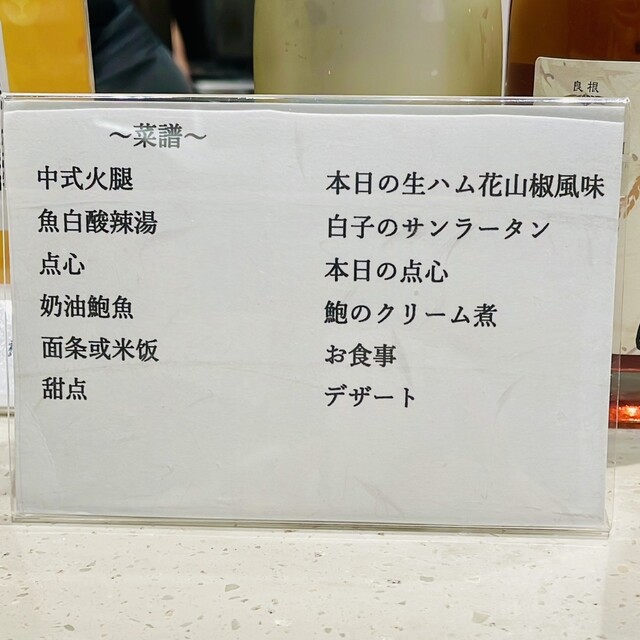 ～菜譜～
中式火腿
本日の生ハム花山椒風味
魚白酸辣湯
白子のサンラータン
点心
本日の点心
奶油鮑魚
鮑のクリーム煮
面条或米饭
お食事
甜点
デザート
良根